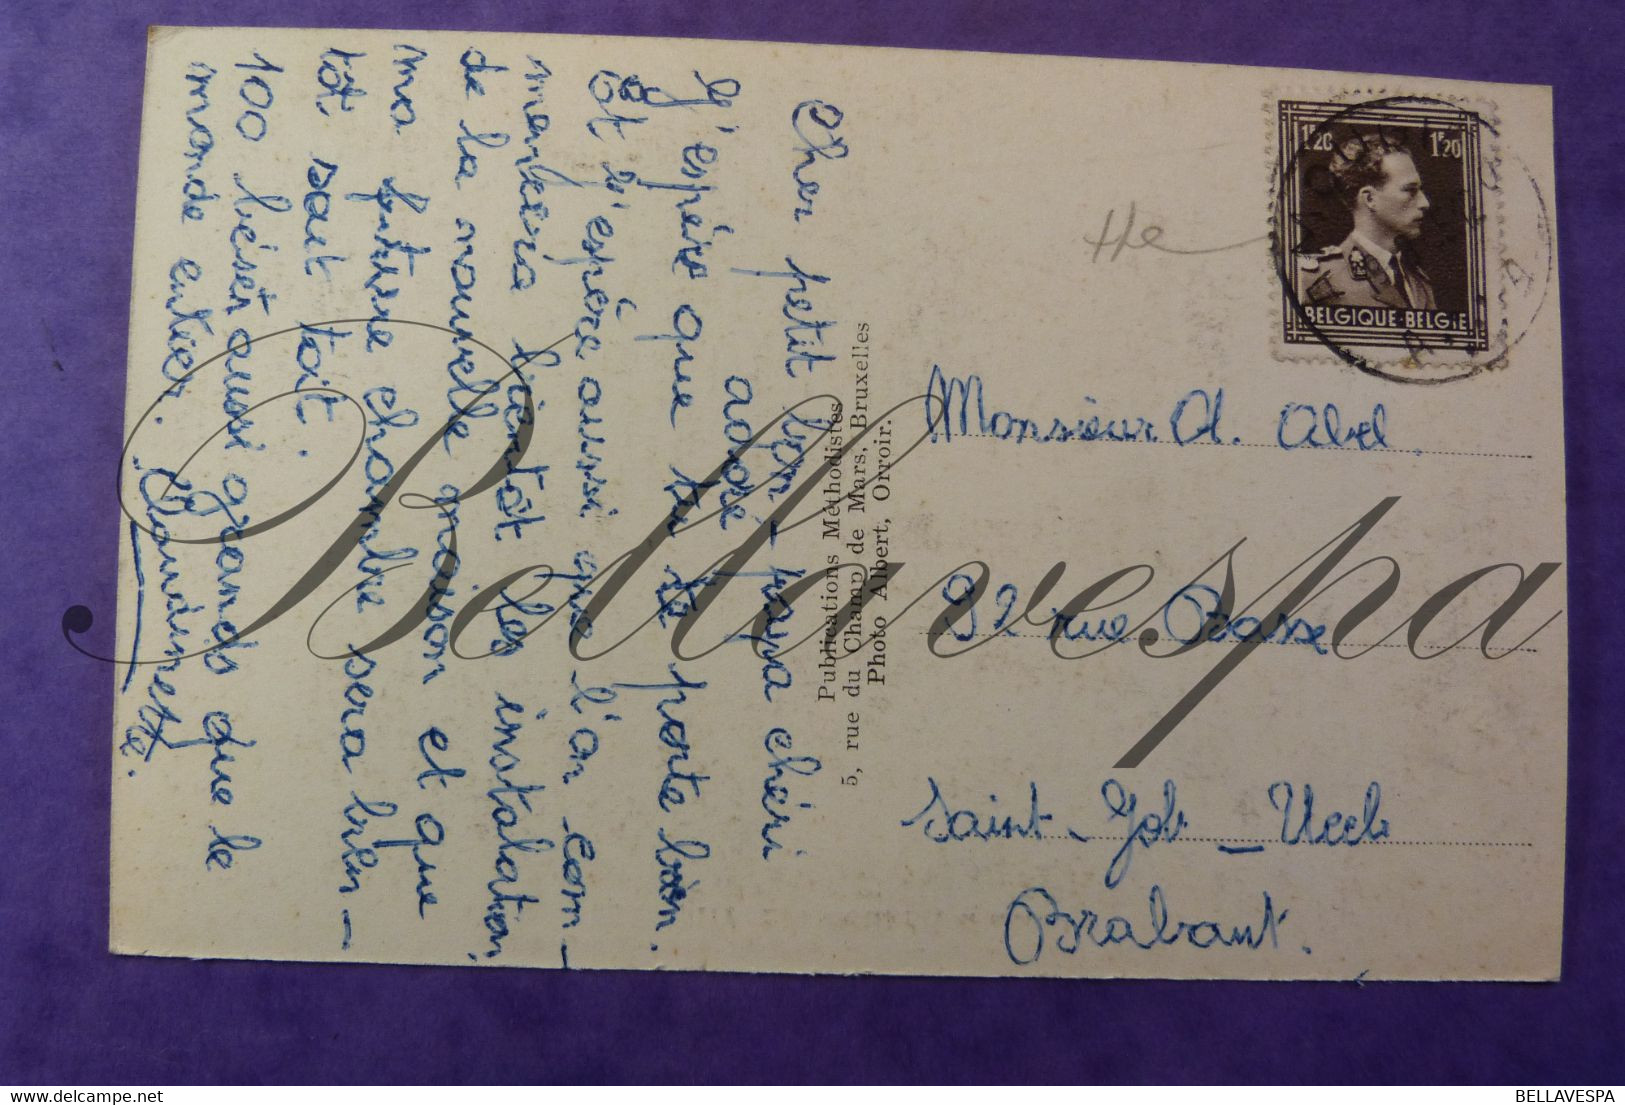 Cher petit bon-papa chéri
adoré
J'espère que tu te porte bien.
Et j'espère aussi que l'on com-
mentera bientôt les instalation
de la nouvelle maison et que
ma future chambre sera bien-
tôt sait toit.
100 béset aussi grands que le
monde entier.
Publications Méthodistes
5, rue du Champ de Mars, Bruxelles
Photo Albert, Orroir.
1F20 1F20
BELGIQUE-BELGIE
Monsieur A. Abel
92 rue Basse
Saint-Job-Uccle
Brabant.
Bellavespa
BELLAVESPA